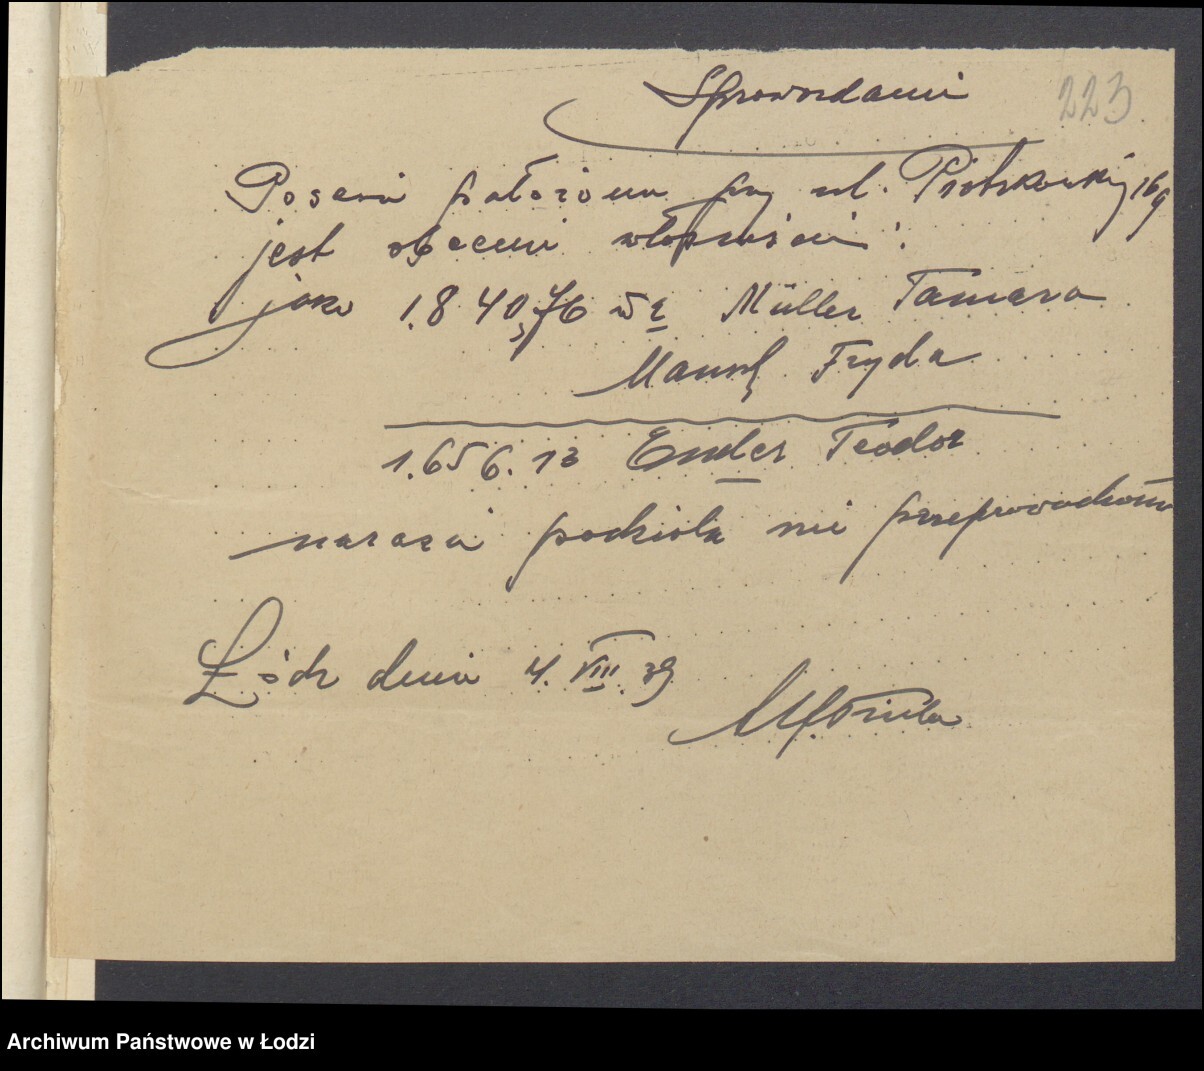 Sprawozdanie
223
Posesia położona przy ul. Piotrkowskiej 169
jest obecnie własnością:
jako 1.840,76 w² Müller Tamara
Fryda
1.656.13 Ender Teodor
narazie podziału nie przeprowadzono
Łódź dnia 4. VIII. 39
Archiwum Państwowe w Łodzi